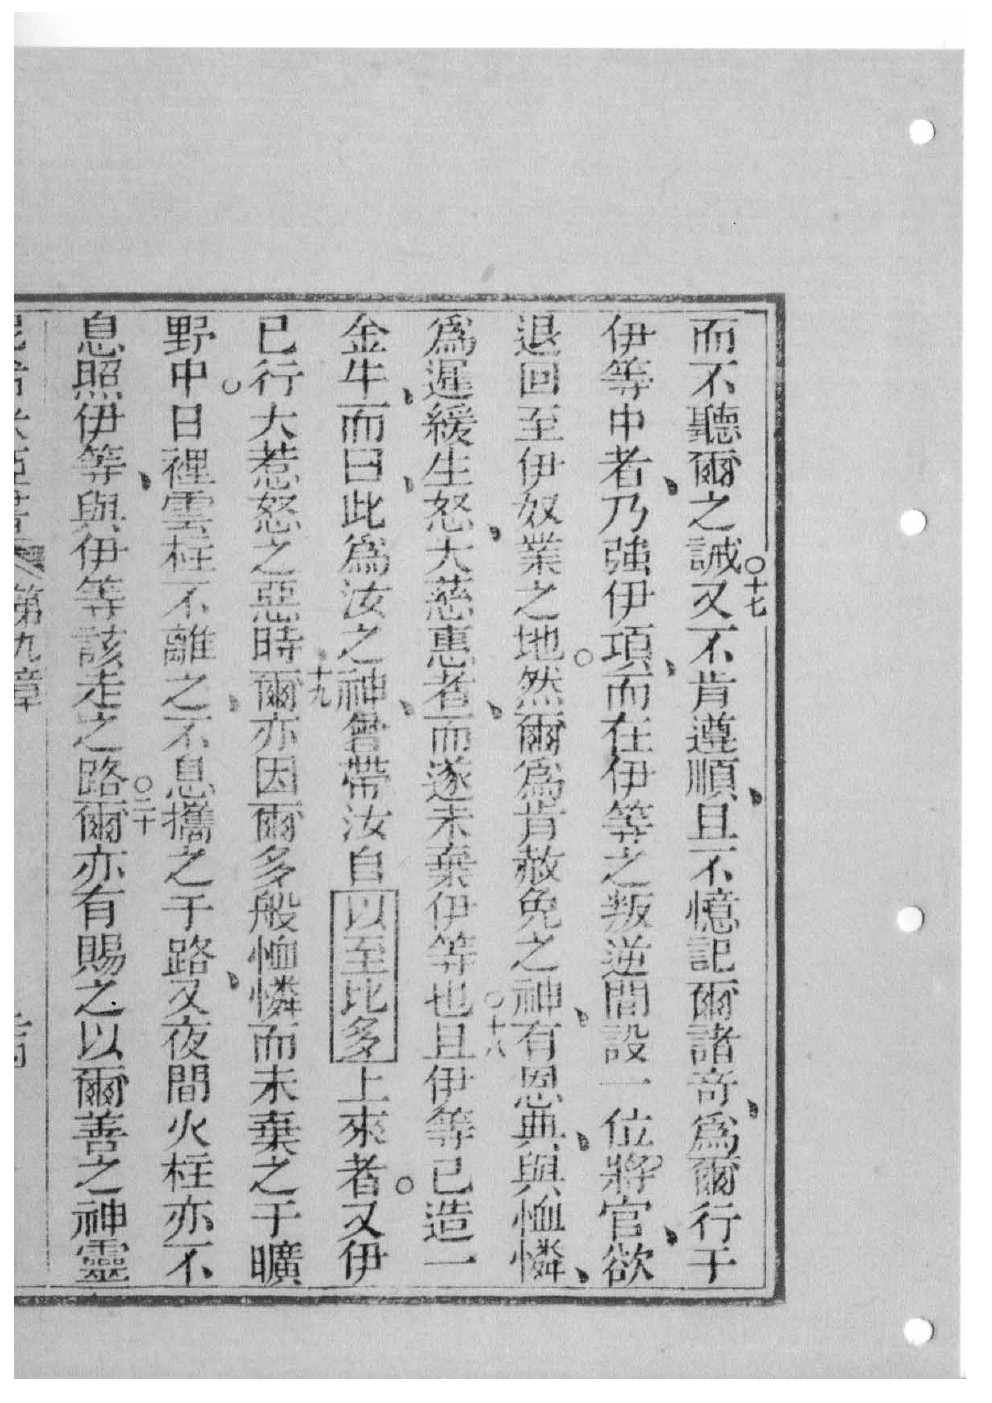 而不聽爾之誡○十七又不肯遵順、且不憶記爾諸奇、爲爾行于
伊等中者、乃強伊項、而在伊等之叛逆間設一位將官、欲
退回至伊奴業之地○然爾爲肯赦免之神、有恩典、與恤憐、
爲遲緩生怒、大慈惠者、而遂未棄伊等也○十八且伊等已造一
金牛、而曰、此爲汝之神、曾帶汝自以至比多上來者○又伊
已行大惹怒之惡時十九爾亦因爾多般恤憐而未棄之于曠
野中○日裡雲柱不離之、不息攜之于路、又夜間火柱亦不
息照伊等、與伊等該走之路○二十爾亦有賜之以爾善之神靈
第九章